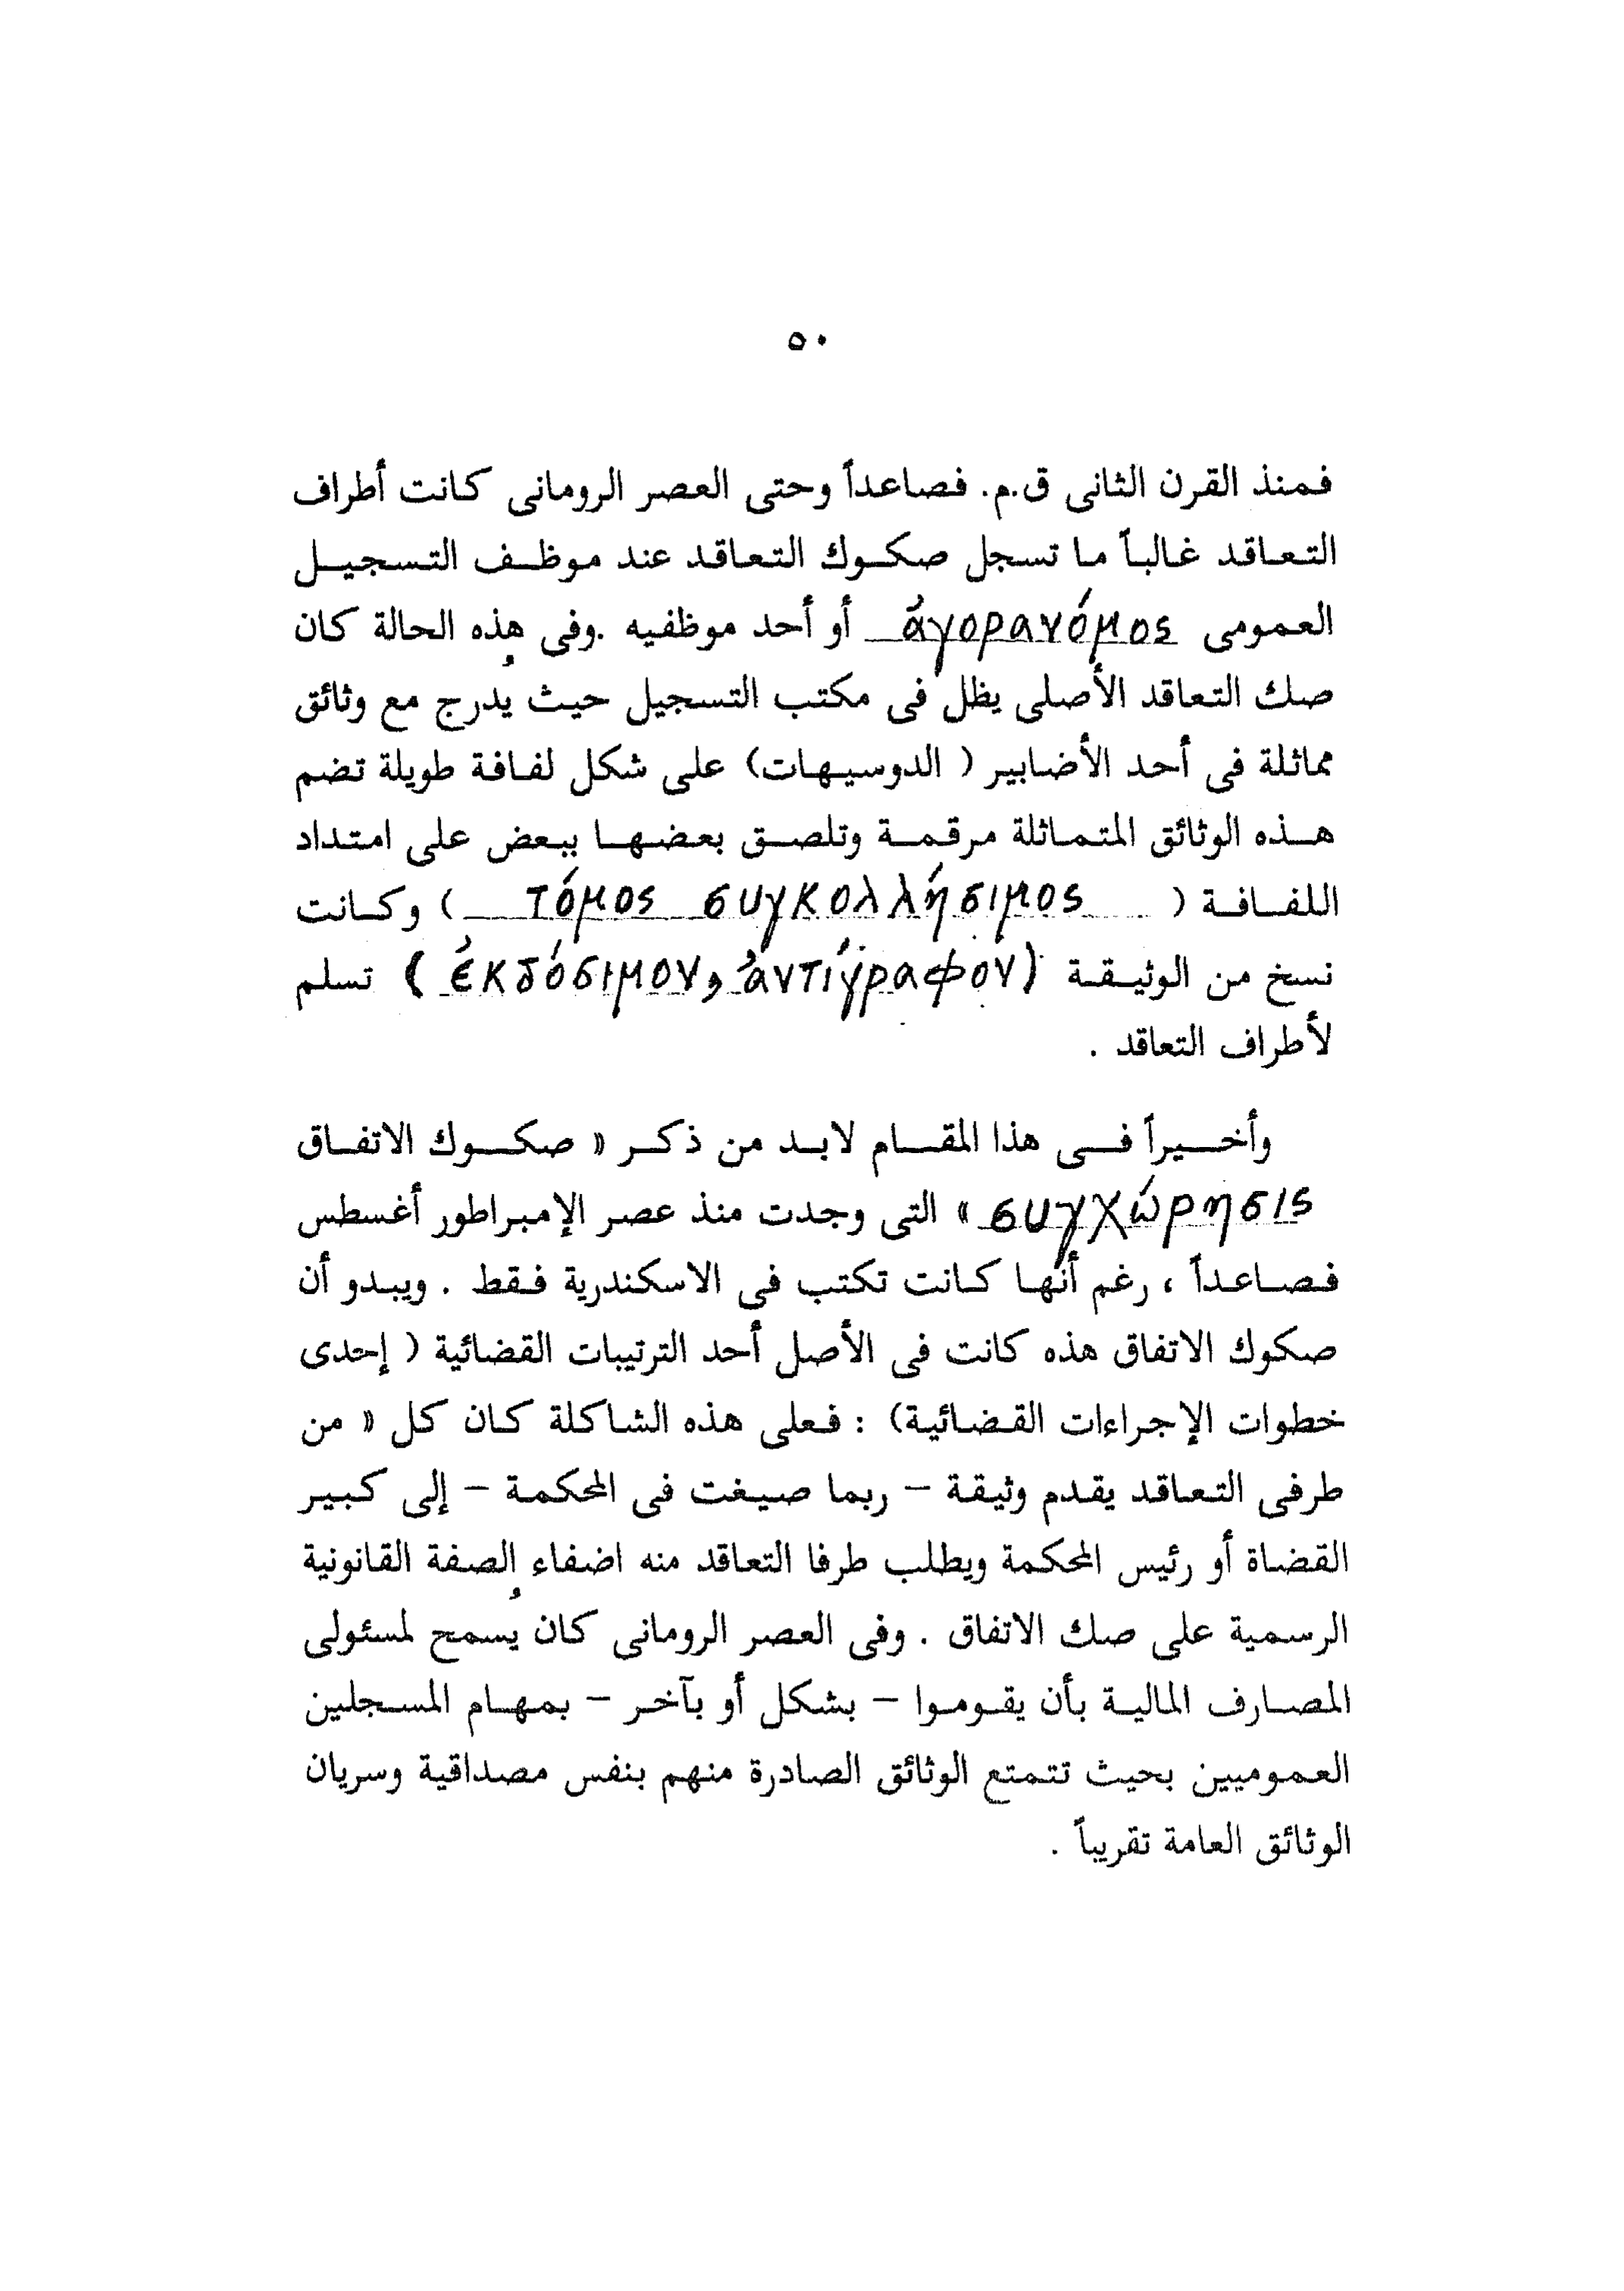 ٥٠
فمنذ القرن الثانى ق.م. فصاعداً وحتى العصر الرومانى كانت أطراف
التعاقد غالباً ما تسجل صكوك التعاقد عند موظف التسجيل
العمومى ἀγορανόμος أو أحد موظفيه .وفى هذه الحالة كان
صك التعاقد الأصلى يظل فى مكتب التسجيل حيث يُدرج مع وثائق
مماثلة فى أحد الأضابير ( الدوسيهات) على شكل لفافة طويلة تضم
هذه الوثائق المتماثلة مرقمة وتلصق بعضها ببعض على امتداد
اللفافة ( τόμος συγκολλήσιμος ) وكانت
نسخ من الوثيقة (ἐκδόσιμον, ἀντίγραφον) تسلم
لأطراف التعاقد .
وأخيراً فى هذا المقام لابد من ذكر « صكوك الاتفاق
συγχώρησις » التى وجدت منذ عصر الإمبراطور أغسطس
فصاعداً ، رغم أنها كانت تكتب فى الاسكندرية فقط . ويبدو أن
صكوك الاتفاق هذه كانت فى الأصل أحد الترتيبات القضائية ( إحدى
خطوات الإجراءات القضائية) : فعلى هذه الشاكلة كان كل « من
طرفى التعاقد يقدم وثيقة – ربما صيغت فى المحكمة – إلى كبير
القضاة أو رئيس المحكمة ويطلب طرفا التعاقد منه اضفاء الصفة القانونية
الرسمية على صك الاتفاق . وفى العصر الرومانى كان يُسمح لمسئولى
المصارف المالية بأن يقوموا – بشكل أو بآخر – بمهام المسجلين
العموميين بحيث تتمتع الوثائق الصادرة منهم بنفس مصداقية وسريان
الوثائق العامة تقريباً .